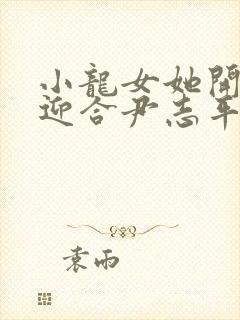 小龍女她開
迎合尹志平
袁雨